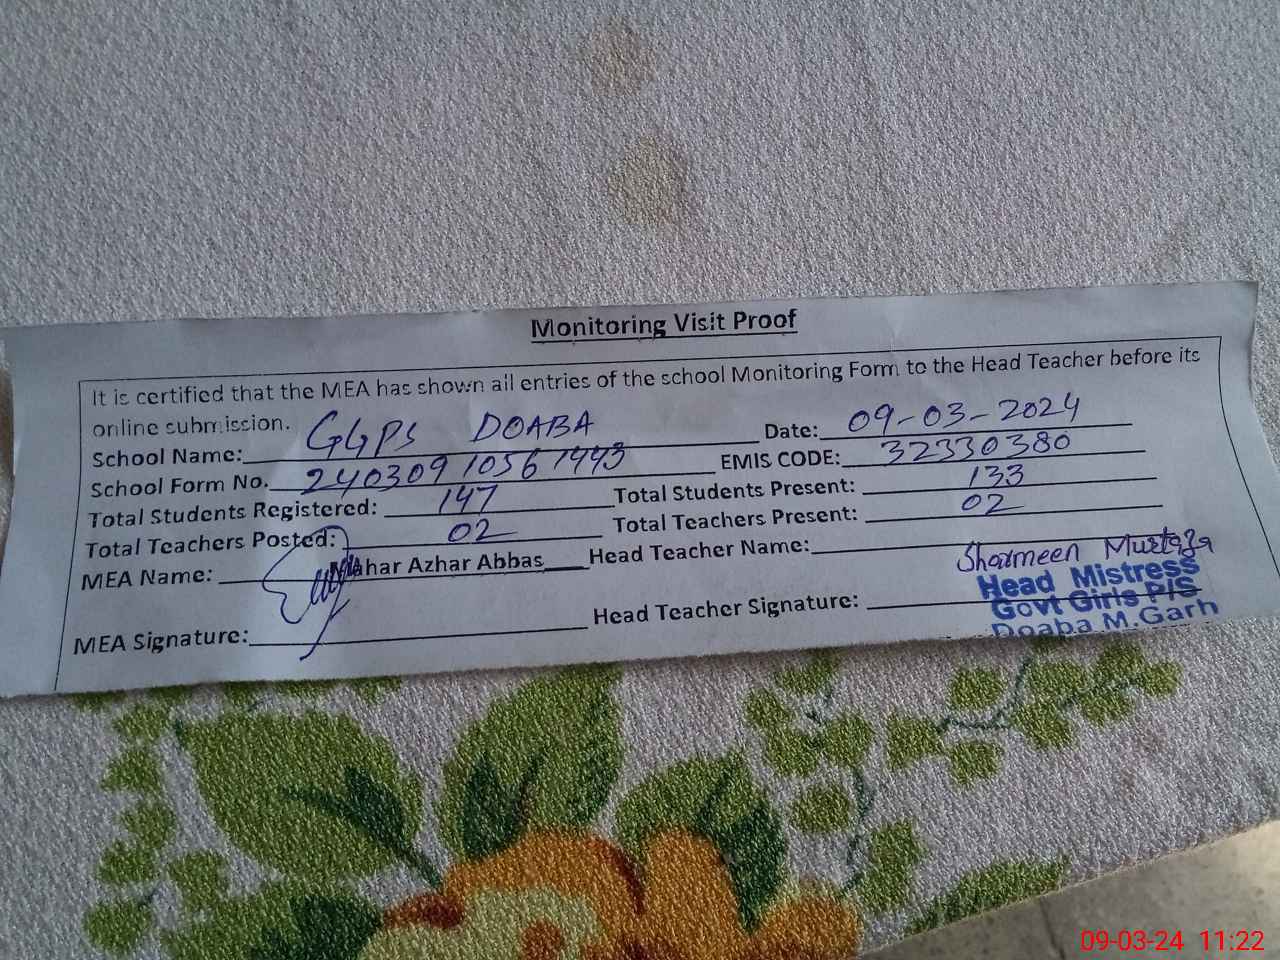 Monitoring Visit Proof
It is certified that the MEA has shown all entries of the school Monitoring Form to the Head Teacher before its
online submission.
School Name: GGPS DOABA Date: 09-03-2024
School Form No. 24030910561443 EMIS CODE: 32330380
Total Students Registered: 147 Total Students Present: 133
Total Teachers Posted: 02 Total Teachers Present: 02
MEA Name: Mahar Azhar Abbas Head Teacher Name: Sharmeen Murtaza
MEA Signature: Head Teacher Signature:
Head Mistress
Govt Girls P/S
Doaba M.Garh
09-03-24 11:22